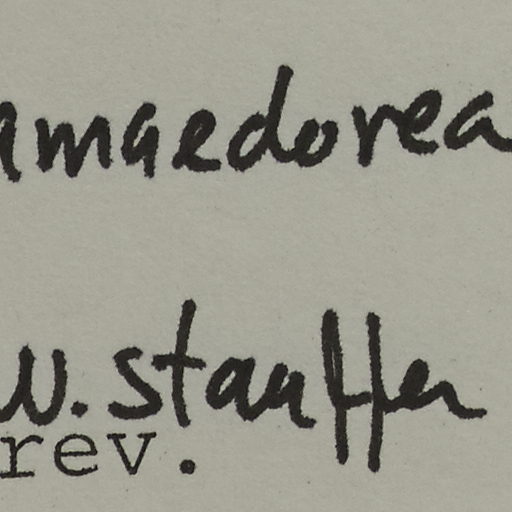 amaedorea
W. Stauffer
rev.